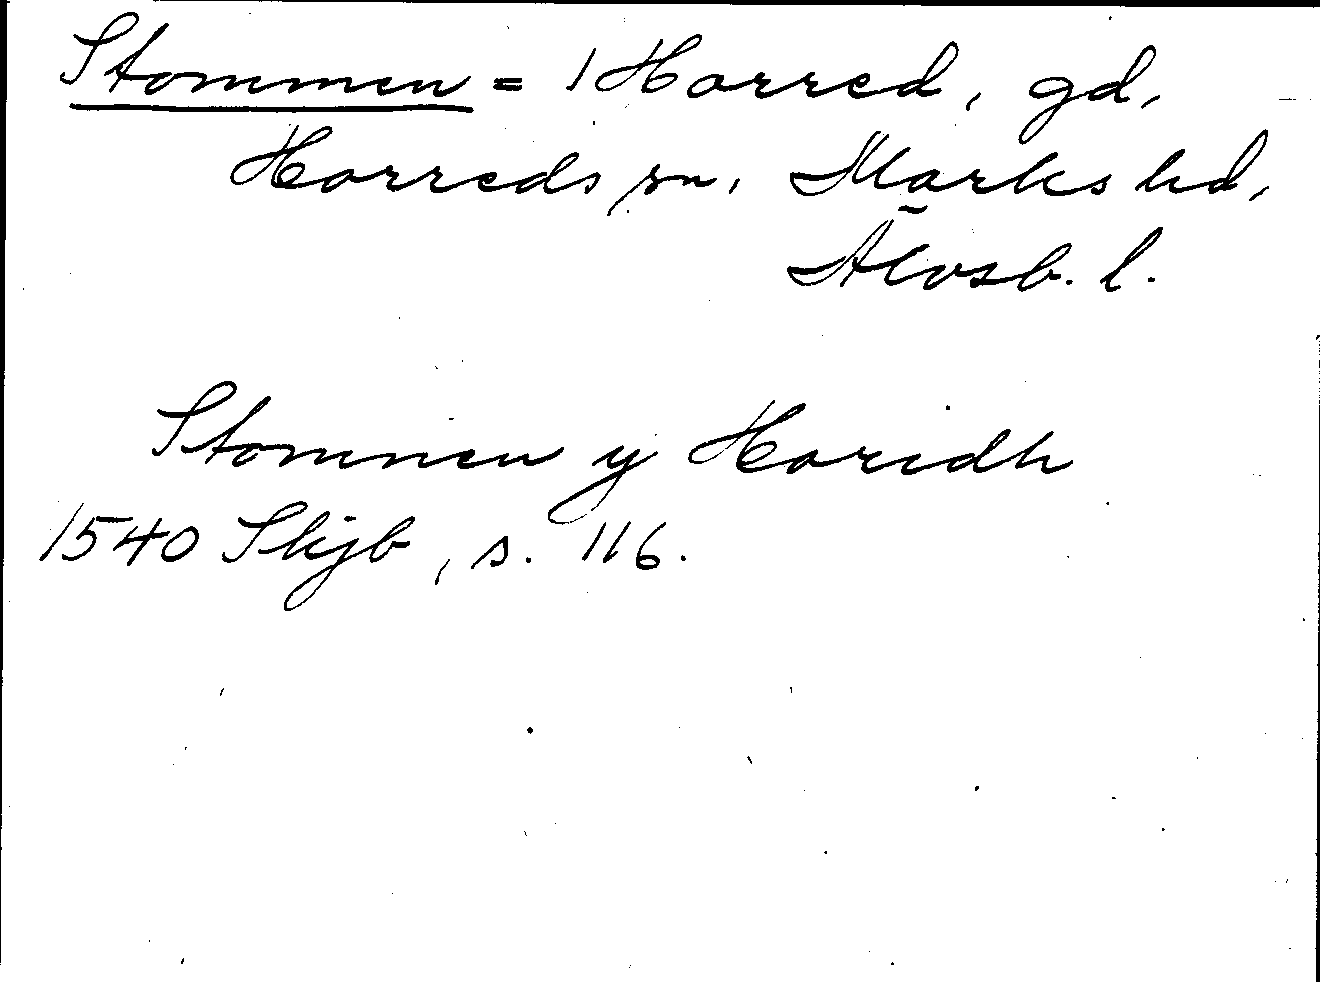 Stommen = 1 Horred, gd,
Horreds sn, Marks hd,
Älvsb. l.
Stommen y Horidh
1540 Skjb, s. 116.